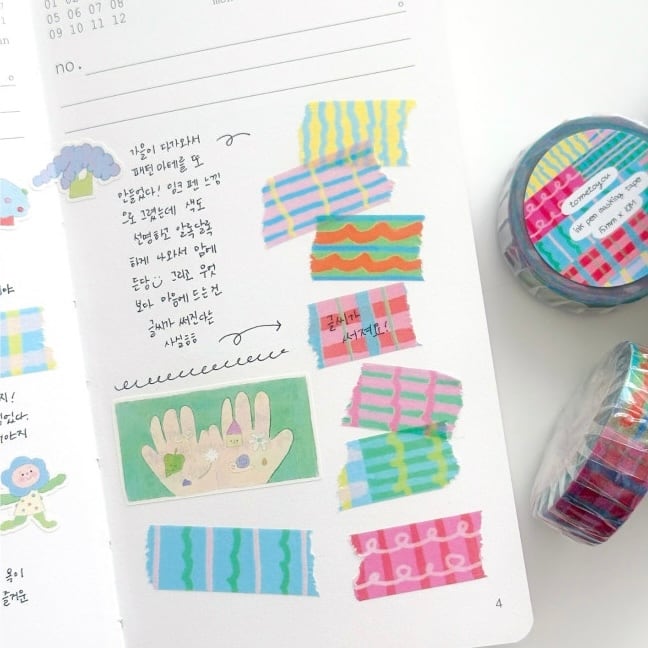 01 02 03 04
05 06 07 08
09 10 11 12
no.
가을이 다가와서
패턴 마테를 또
만들었다! 잉크 펜 느낌
으로 그렸는데 색도
선명하고 알록달록
하게 나와서 맘에
든당 그리고 무엇
보다 마음에 드는건
글씨가 써진다는
사실ㅎㅎ
글씨가
써져요!
4
tometoyou
ink pen masking tape
15mm x 10M
지!
었다.
야지
옥이
즐거운